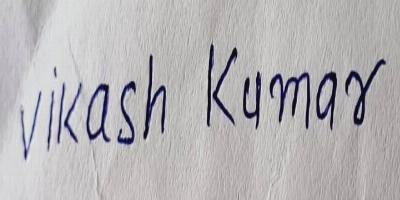 vikash Kumar